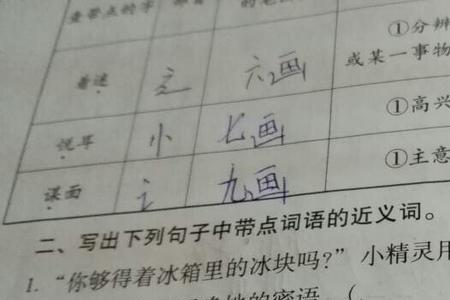 查带点的字
①分辨
或某一事物
着迷 辶 六画
①高兴
悦耳 忄 七画
①主意
谋面 讠 九画
二、写出下列句子中带点词语的近义词。
1. “你够得着冰箱里的冰块吗?” 小精灵用
的密语。(